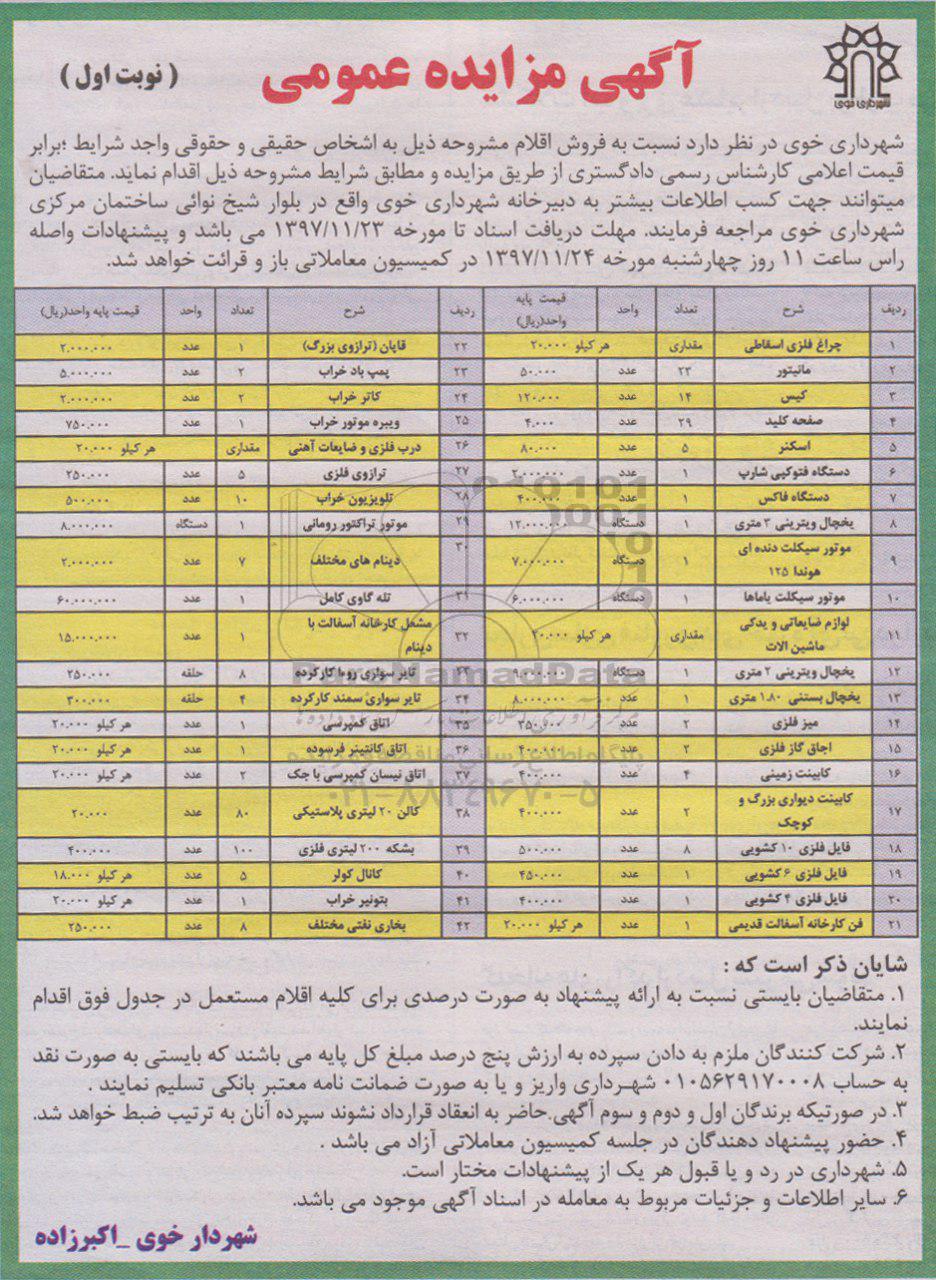 شهرداری خوی
آگهی مزایده عمومی
( نوبت اول )
شهرداری خوی در نظر دارد نسبت به فروش اقلام مشروحه ذیل به اشخاص حقیقی و حقوقی واجد شرایط ؛برابر
قیمت اعلامی کارشناس رسمی دادگستری از طریق مزایده و مطابق شرایط مشروحه ذیل اقدام نماید. متقاضیان
میتوانند جهت کسب اطلاعات بیشتر به دبیرخانه شهرداری خوی واقع در بلوار شیخ نوائی ساختمان مرکزی
شهرداری خوی مراجعه فرمایند. مهلت دریافت اسناد تا مورخه ۱۳۹۷/۱۱/۲۳ می باشد و پیشنهادات واصله
راس ساعت ۱۱ روز چهارشنبه مورخه ۱۳۹۷/۱۱/۲۴ در کمیسیون معاملاتی باز و قرائت خواهد شد.
ردیف شرح تعداد واحد قیمت پایه واحد(ریال) ردیف شرح تعداد واحد قیمت پایه واحد(ریال)
۱ چراغ فلزی اسقاطی مقداری هر کیلو ۲۰.۰۰۰ ۲۲ قاپان (ترازوی بزرگ) ۱ عدد ۲.۰۰۰.۰۰۰
۲ مانیتور ۲۳ عدد ۵۰.۰۰۰ ۲۳ پمپ باد خراب ۲ عدد ۵.۰۰۰.۰۰۰
۳ کیس ۱۴ عدد ۱۲۰.۰۰۰ ۲۴ کاتر خراب ۲ عدد ۲.۰۰۰.۰۰۰
۴ صفحه کلید ۲۹ عدد ۴.۰۰۰ ۲۵ ویبره موتور خراب ۱ عدد ۷۵۰.۰۰۰
۵ اسکنر ۵ عدد ۸۰.۰۰۰ ۲۶ درب فلزی و ضایعات آهنی مقداری هر کیلو ۲۰.۰۰۰
۶ دستگاه فتوکپی شارپ ۱ عدد ۲.۰۰۰.۰۰۰ ۲۷ ترازوی فلزی ۵ عدد ۲۵۰.۰۰۰
۷ دستگاه فاکس ۱ عدد ۴۰۰.۰۰۰ ۲۸ تلویزیون خراب ۱۰ عدد ۵۰۰.۰۰۰
۸ یخچال ویترینی ۳ متری ۱ دستگاه ۱۲.۰۰۰.۰۰۰ ۲۹ موتور تراکتور رومانی ۱ دستگاه ۸.۰۰۰.۰۰۰
۹ موتور سیکلت دنده ای هوندا ۱۲۵ ۱ دستگاه ۷.۰۰۰.۰۰۰ ۳۰ دینام های مختلف ۷ عدد ۲.۰۰۰.۰۰۰
۱۰ موتور سیکلت یاماها ۱ دستگاه ۶.۰۰۰.۰۰۰ ۳۱ تله گاوی کامل ۱ عدد ۶۰.۰۰۰.۰۰۰
۱۱ لوازم ضایعاتی و یدکی ماشین الات مقداری هر کیلو ۲۰.۰۰۰ ۳۲ مشعل کارخانه آسفالت با دینام ۱ عدد ۱۵.۰۰۰.۰۰۰
۱۲ یخچال ویترینی ۲ متری ۱ دستگاه ۳۳ تایر سواری روما کارکرده ۸ حلقه ۲۵۰.۰۰۰
۱۳ یخچال بستنی ۱.۸۰ متری ۱ عدد ۸.۰۰۰.۰۰۰ ۳۴ تایر سواری سمند کارکرده ۴ حلقه ۳۰۰.۰۰۰
۱۴ میز فلزی ۲ عدد ۲۵۰.۰۰۰ ۳۵ اتاق کمپرسی ۱ عدد هر کیلو ۲۰.۰۰۰
۱۵ اجاق گاز فلزی ۲ عدد ۲۰۰.۰۰۰ ۳۶ اتاق کانتینر فرسوده ۱ عدد هر کیلو ۲۰.۰۰۰
۱۶ کابینت زمینی ۴ عدد ۴۰۰.۰۰۰ ۳۷ اتاق نیسان کمپرسی با جک ۲ عدد هر کیلو ۲۰.۰۰۰
۱۷ کابینت دیواری بزرگ و کوچک ۲ عدد ۴۰۰.۰۰۰ ۳۸ گالن ۲۰ لیتری پلاستیکی ۸۰ عدد ۲۰.۰۰۰
۱۸ فایل فلزی ۱۰ کشویی ۸ عدد ۵۰۰.۰۰۰ ۳۹ بشکه ۲۰۰ لیتری فلزی ۱۰۰ عدد ۴۰۰.۰۰۰
۱۹ فایل فلزی ۶ کشویی ۱ عدد ۴۵۰.۰۰۰ ۴۰ کانال کولر ۵ عدد هر کیلو ۱۸.۰۰۰
۲۰ فایل فلزی ۴ کشویی ۱ عدد ۴۰۰.۰۰۰ ۴۱ بتونیر خراب ۱ عدد هر کیلو ۲۰.۰۰۰
۲۱ فن کارخانه آسفالت قدیمی ۱ عدد هر کیلو ۲۰.۰۰۰ ۴۲ بخاری نفتی مختلف ۸ عدد ۲۵۰.۰۰۰
ParsNamadData
۰۲۱-۸۸۳۴۹۶۷۰-۵
شایان ذکر است که :
۱. متقاضیان بایستی نسبت به ارائه پیشنهاد به صورت درصدی برای کلیه اقلام مستعمل در جدول فوق اقدام
نمایند.
۲. شرکت کنندگان ملزم به دادن سپرده به ارزش پنج درصد مبلغ کل پایه می باشند که بایستی به صورت نقد
به حساب ۰۱۰۵۶۲۹۱۷۰۰۰۸ شهرداری واریز و یا به صورت ضمانت نامه معتبر بانکی تسلیم نمایند .
۳. در صورتیکه برندگان اول و دوم و سوم آگهی.حاضر به انعقاد قرارداد نشوند سپرده آنان به ترتیب ضبط خواهد شد.
۴. حضور پیشنهاد دهندگان در جلسه کمیسیون معاملاتی آزاد می باشد .
۵. شهرداری در رد و یا قبول هر یک از پیشنهادات مختار است.
۶. سایر اطلاعات و جزئیات مربوط به معامله در اسناد آگهی موجود می باشد.
شهردار خوی _اکبرزاده